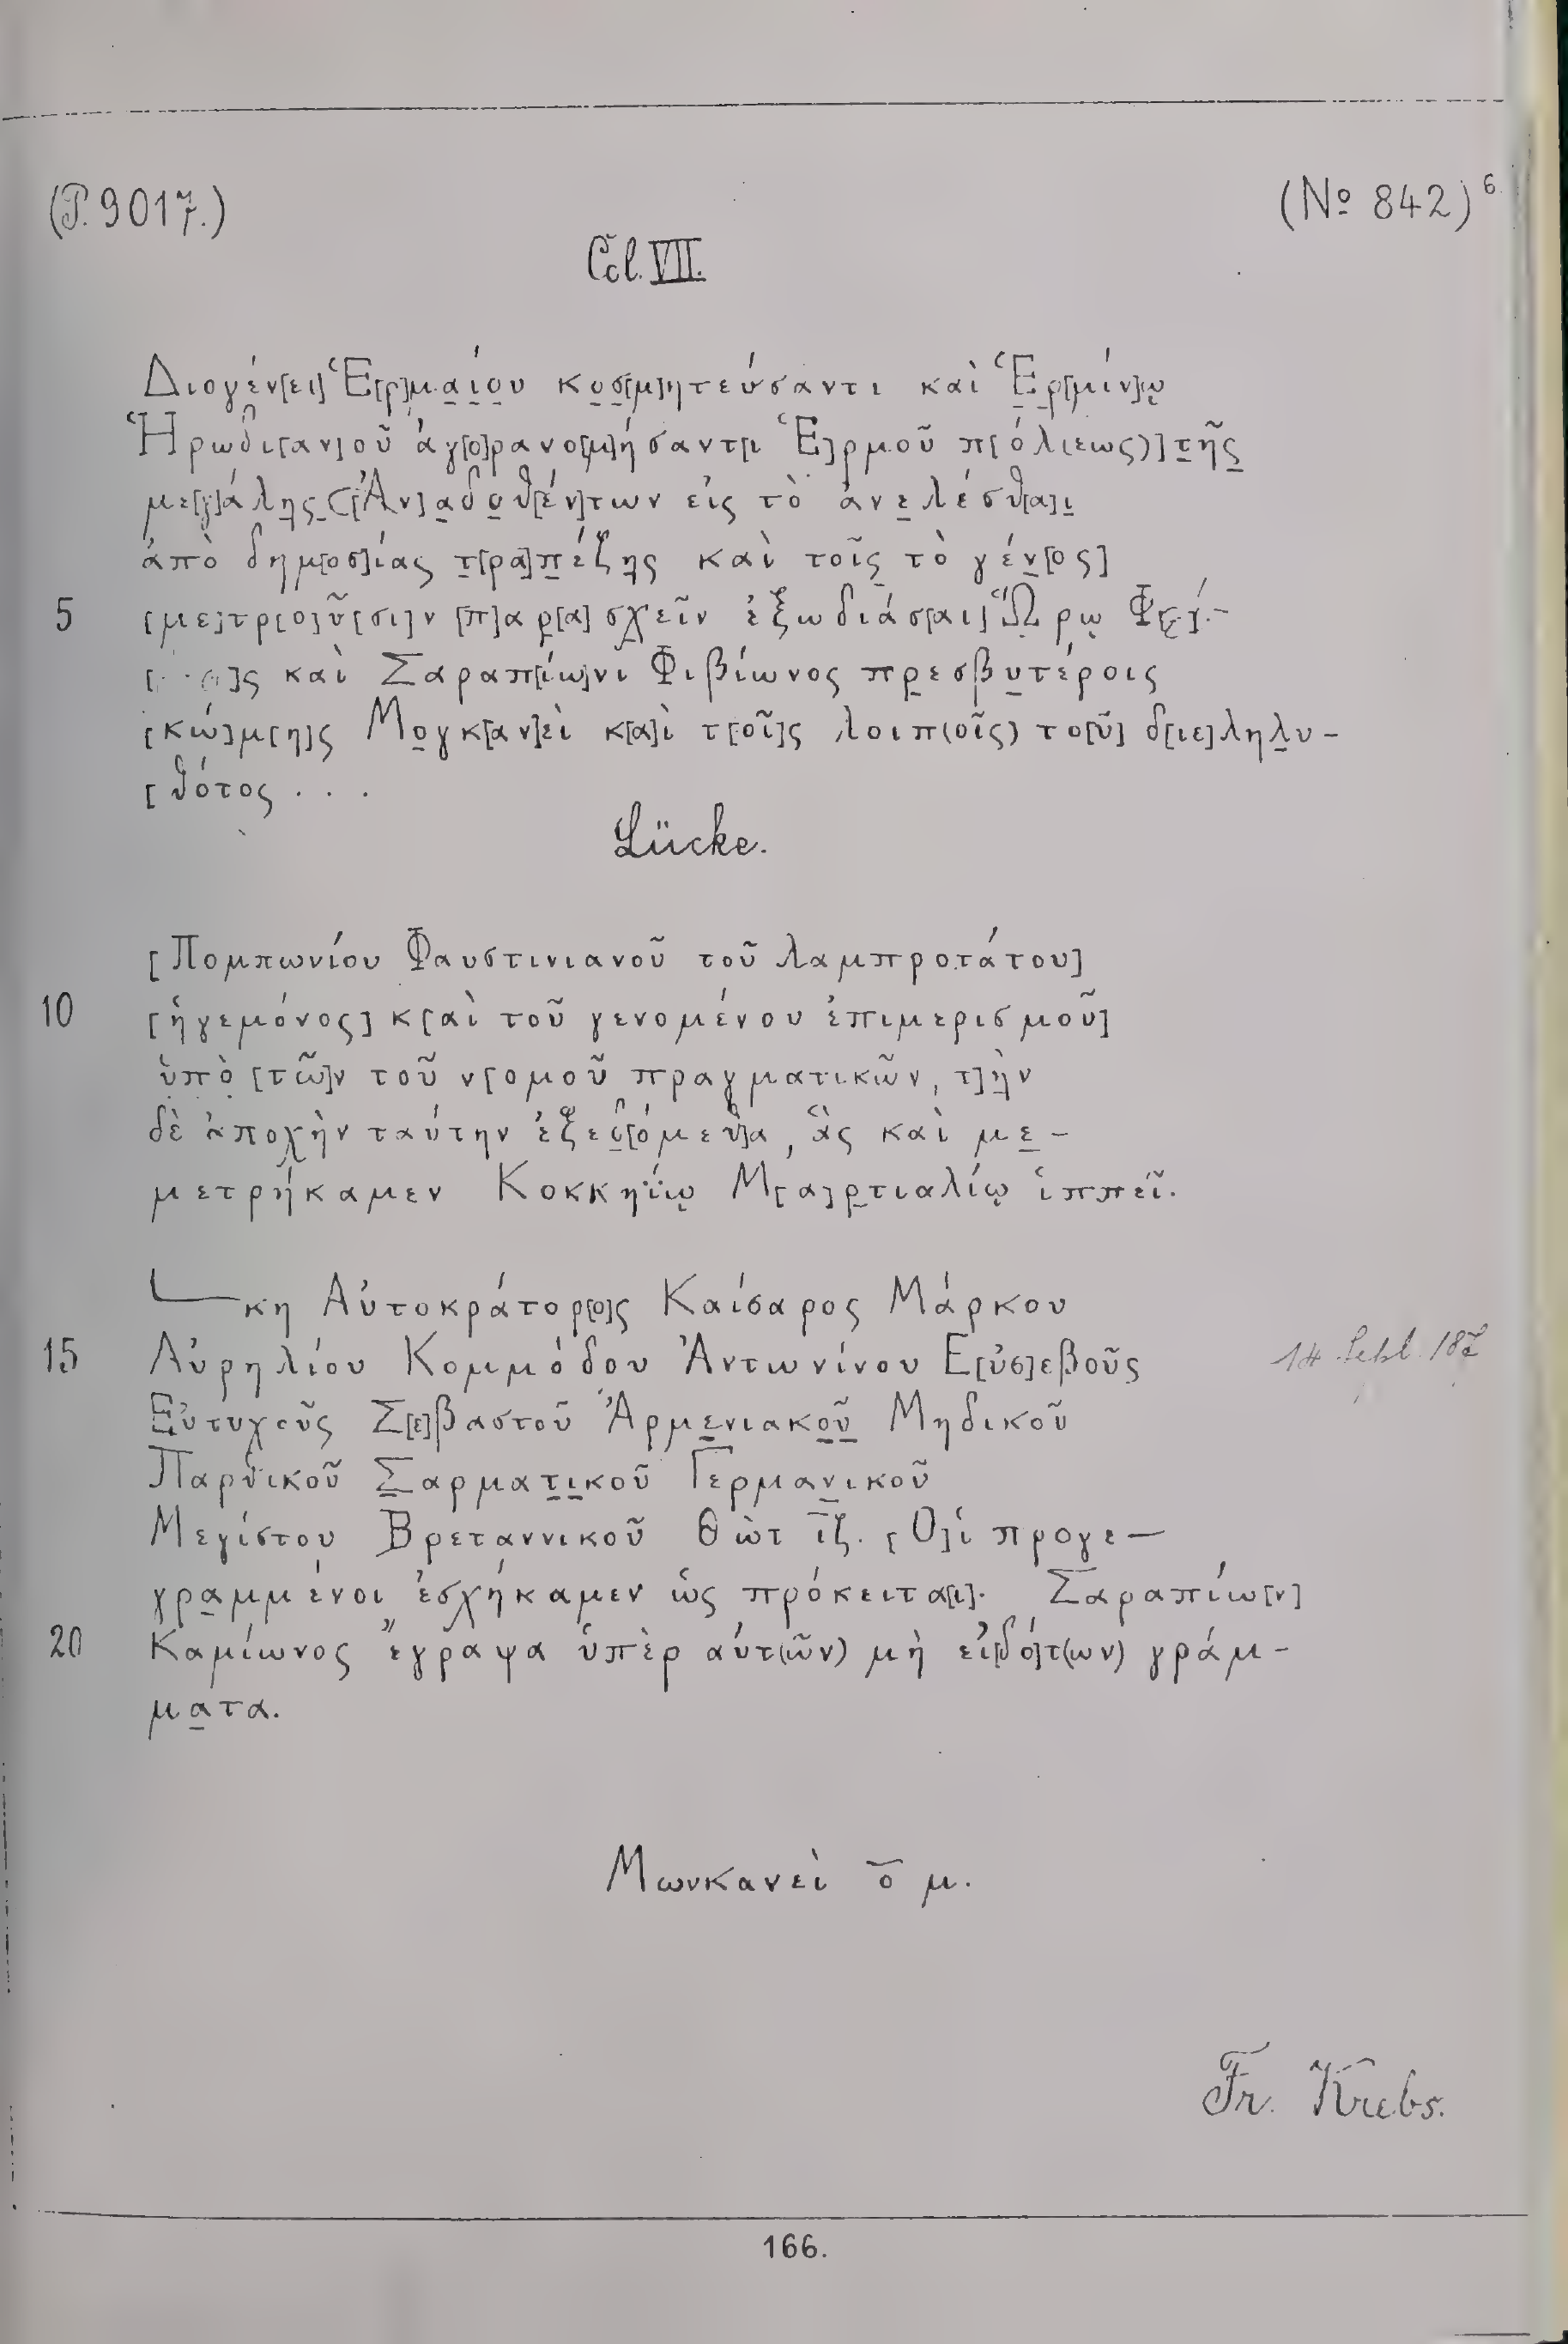 (P. 9017.)
(No 842) 6.
Col. VII.
Διογέν[ει] Ἑ[ρ]μαίου κοσ[μ]ητεύσαντι καὶ Ἑρ[μίν]ῳ
Ἡρωδι[αν]οῦ ἀγ[ο]ρανο[μ]ήσαντ[ι Ἑ]ρμοῦ π[όλ(εως)] τῆς
με[γ]άλης. [Ἀν]αδοθ[έν]των εἰς τὸ ἀνελέσθ[α]ι
ἀπὸ δημ[οσ]ίας τ[ρα]πέζης καὶ τοῖς τὸ γέν[ος]
5 [με]τρ[ο]ῦ[σι]ν [π]αρ[α]σχεῖν ἐξωδιάσ[αι] Ὥρῳ
]ς καὶ Σαραπ[ίω]νι Φιβίωνος πρεσβυτέροις
[κώ]μ[η]ς Μογκ[αν]εὶ κ[α]ὶ τ[οῖ]ς λοιπ(οῖς) το[ῦ] δ[ιε]ληλυ-
[θότος . . .
Lücke.
[Πομπωνίου Φαυστινιανοῦ τοῦ λαμπροτάτου]
10 [ἡγεμόνος] κ[αὶ τοῦ γενομένου ἐπιμερισμοῦ]
ὑπὸ [τῶ]ν τοῦ ν[ομοῦ πραγματικῶν, τ]ὴν
δὲ ἀποχὴν ταύτην ἐξεδ[όμεθ]α, ἃς καὶ με-
μετρήκαμεν Κοκκηΐῳ Μ[α]ρτιαλίῳ ἱππεῖ.
L κη Αὐτοκράτορ[ο]ς Καίσαρος Μάρκου
15 Αὐρηλίου Κομμόδου Ἀντωνίνου Ε[ὐσ]εβοῦς
14 Sept. 187
Εὐτυχοῦς Σ[ε]βαστοῦ Ἀρμενιακοῦ Μηδικοῦ
Παρθικοῦ Σαρματικοῦ Γερμανικοῦ
Μεγίστου Βρεταννικοῦ Θὼτ ι̅ζ̅. [Ο]ἱ προγε-
γραμμένοι ἐσχήκαμεν ὡς πρόκειτα[ι]. Σαραπίω[ν]
20 Καμίωνος ἔγραψα ὑπὲρ αὐτ(ῶν) μὴ εἰ[δό]τ(ων) γράμ-
ματα.
Μωνκανεὶ ο̅ μ.
Fr. Krebs.
166.